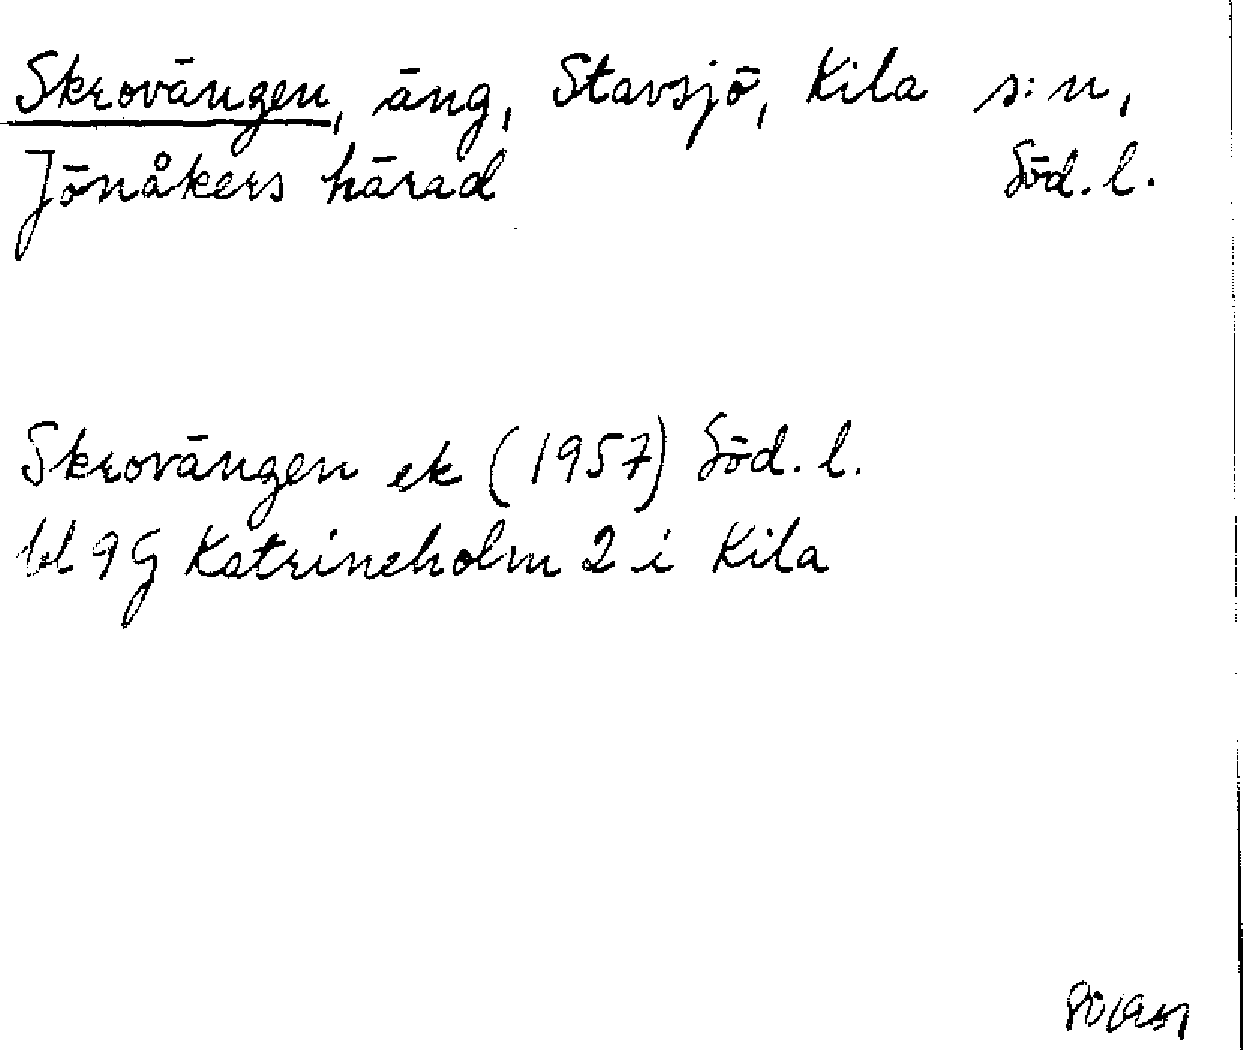 Skrovängen, äng, Stavsjö, Kila s:n,
Jönåkers härad Söd. l.
Skrovängen ek (1957) Söd. l.
bl 9G Katrineholm 2 i Kila